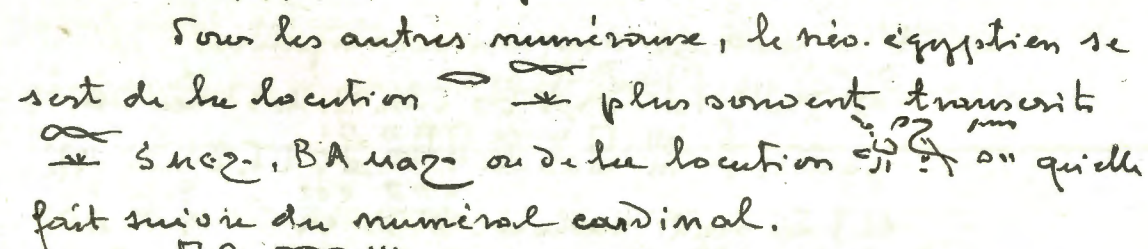 Pour les autres numéraux, le néo-égyptien se
sert de la locution plus souvent transcrit
S ⲙⲉϩ-, BA ⲙⲁϩ- ou de la locution qu'elle
fait suivre du numéral cardinal.